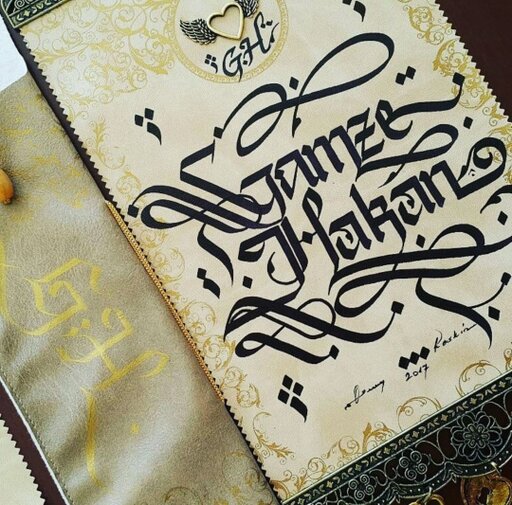 G.H.
Gamze
Hakan
Keskin
2017
G.H.